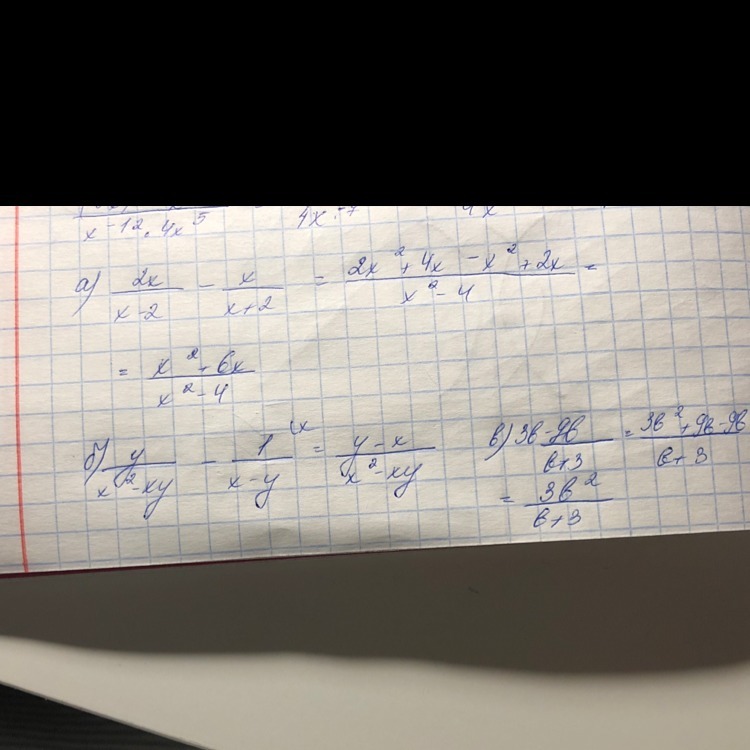 x^-12 · 4x^5 4x^-7 4x
а) 2x/(x-2) - x/(x+2) = (2x^2+4x -x^2+2x)/(x^2-4) =
= (x^2+6x)/(x^2-4)
б) y/(x^2-xy) - 1/(x-y) (x = (y-x)/(x^2-xy)
в) 3b - 9b/(b+3) = (3b^2+9b-9b)/(b+3)
= 3b^2/(b+3)